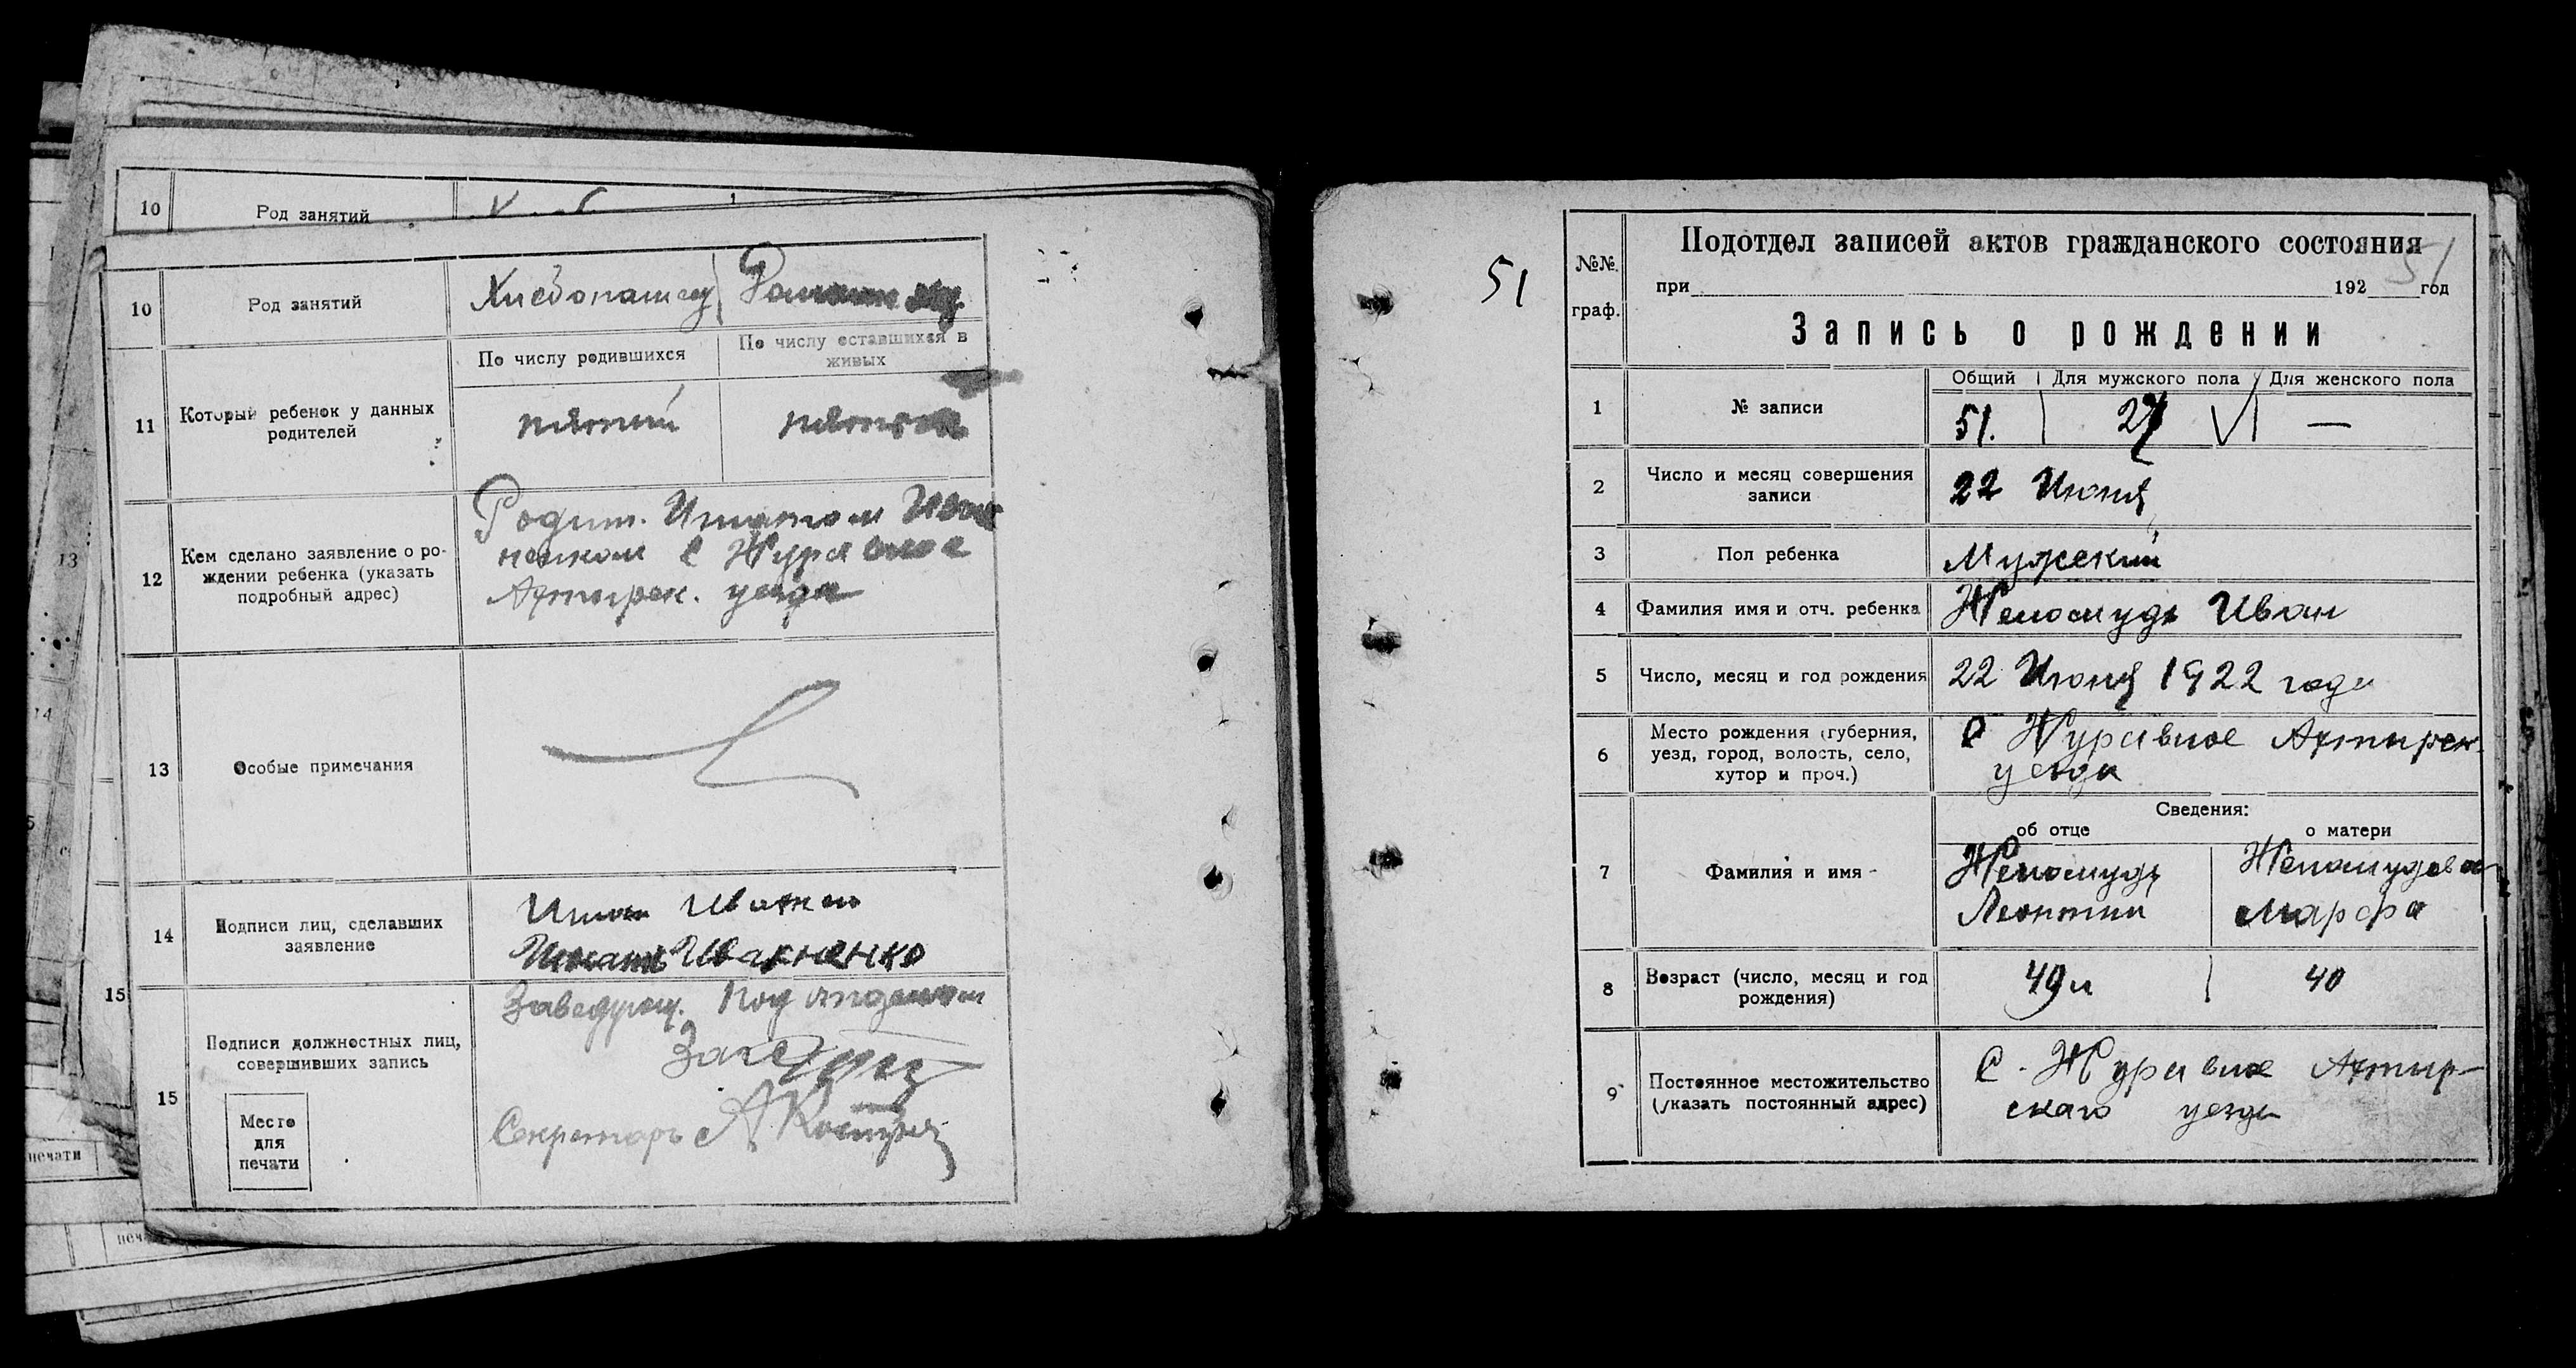 10
Род занятий
10
Род занятий
Хлебопашец
11
Который ребенок у данных
родителей
По числу родившихся
По числу оставшихся в
живых
пятый
пятый
12
Кем сделано заявление о ро-
ждении ребенка (указать
подробный адрес)
Родит. Игнатом Ивах
ненком с Журавное
Ахтырск. уезда
13
Особые примечания
14
Подписи лиц, сделавших
заявление
Ивахненко
15
Подписи должностных лиц,
совершивших запись
Место
для
печати
Заведующ. Подотделом
Секретарь
13
14
15
печати
51
№№
граф.
Подотдел записей актов гражданского состояния
51
при 192 год
Запись о рождении
1
№ записи
Общий Для мужского пола Для женского пола
51. 27 —
2
Число и месяц совершения
записи
22 Июня
3
Пол ребенка
Мужский
4
Фамилия имя и отч. ребенка
Иван
5
Число, месяц и год рождения
22 Июня 1922 года
6
Место рождения (губерния,
уезд, город, волость, село,
хутор и проч.)
С Журавное Ахтырск.
уезда
Сведения:
об отце
о матери
7
Фамилия и имя
Леонтий
Марфа
8
Возраст (число, месяц и год
рождения)
49 л
40
9
Постоянное местожительство
(указать постоянный адрес)
С. Журавное Ахтыр-
скаго уезда